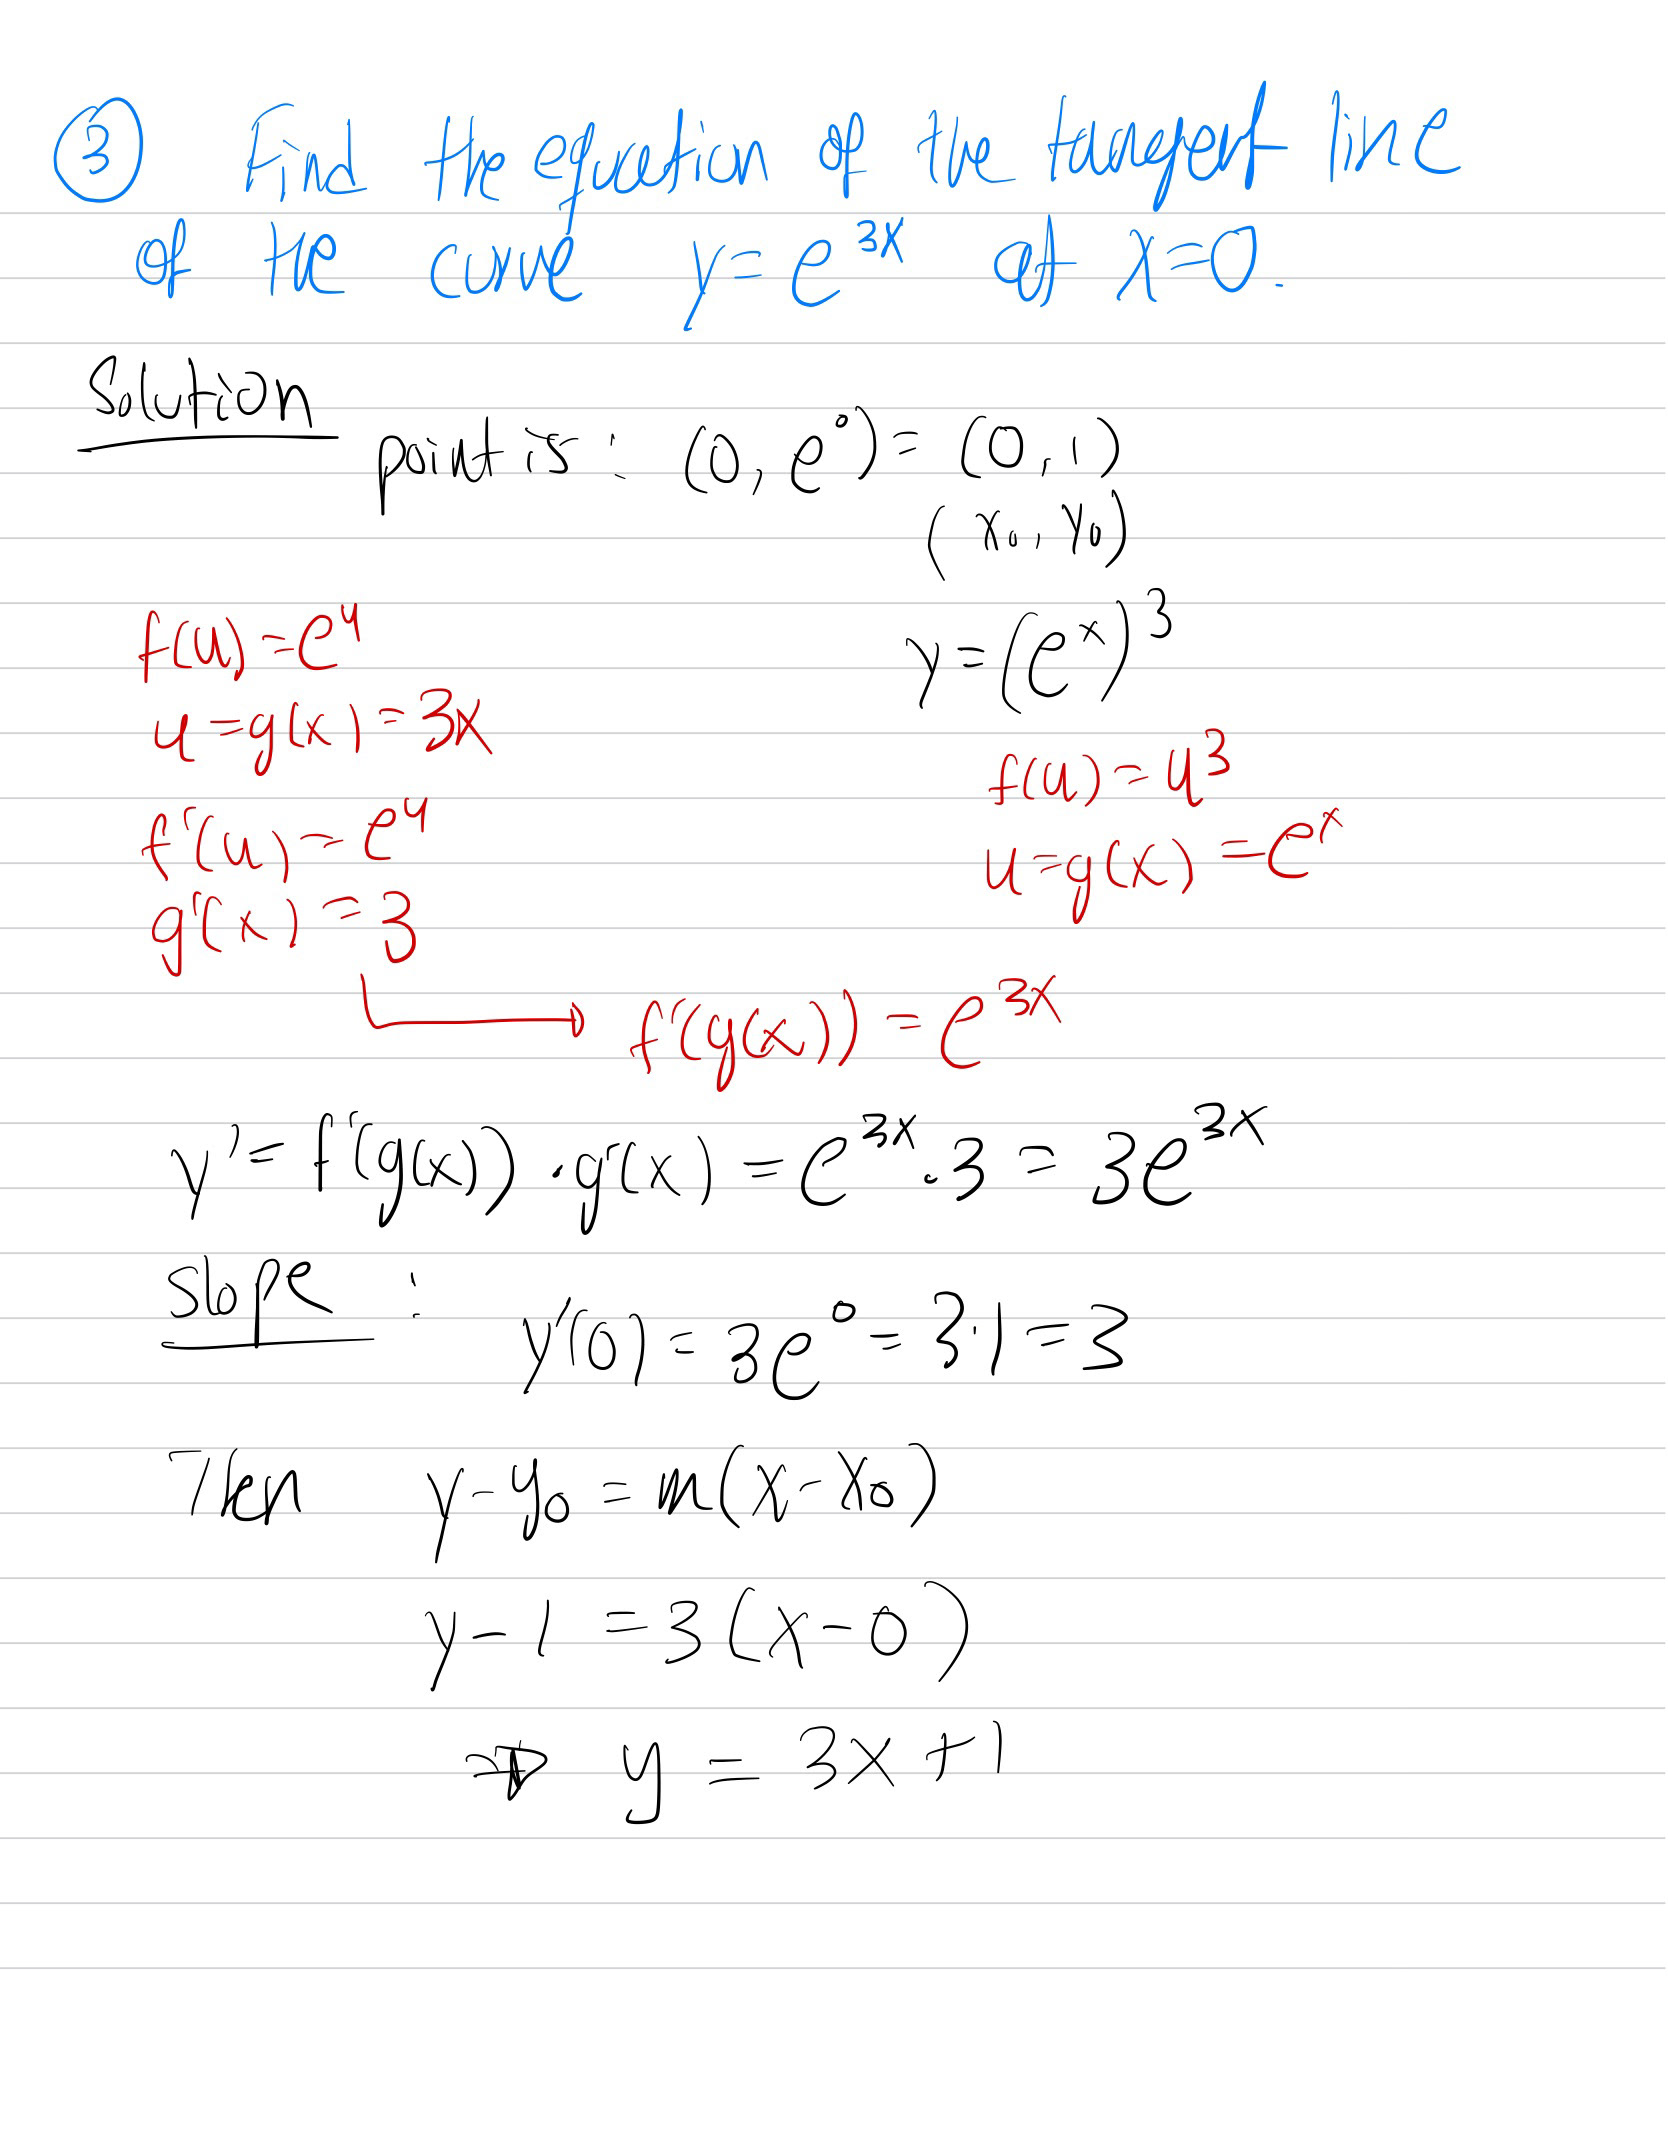 ③ Find the equation of the tangent line
of the curve y = e^{3x} at x=0.
Solution
point is: (0, e^0) = (0, 1)
(x_0, y_0)
f(u) = e^u
y = (e^x)^3
u = g(x) = 3x
f(u) = u^3
f'(u) = e^u
u = g(x) = e^x
g'(x) = 3
f'(g(x)) = e^{3x}
y' = f'(g(x)) · g'(x) = e^{3x} · 3 = 3e^{3x}
Slope : y'(0) = 3e^0 = 3·1 = 3
Then y - y_0 = m(x - x_0)
y - 1 = 3(x - 0)
⇒ y = 3x + 1